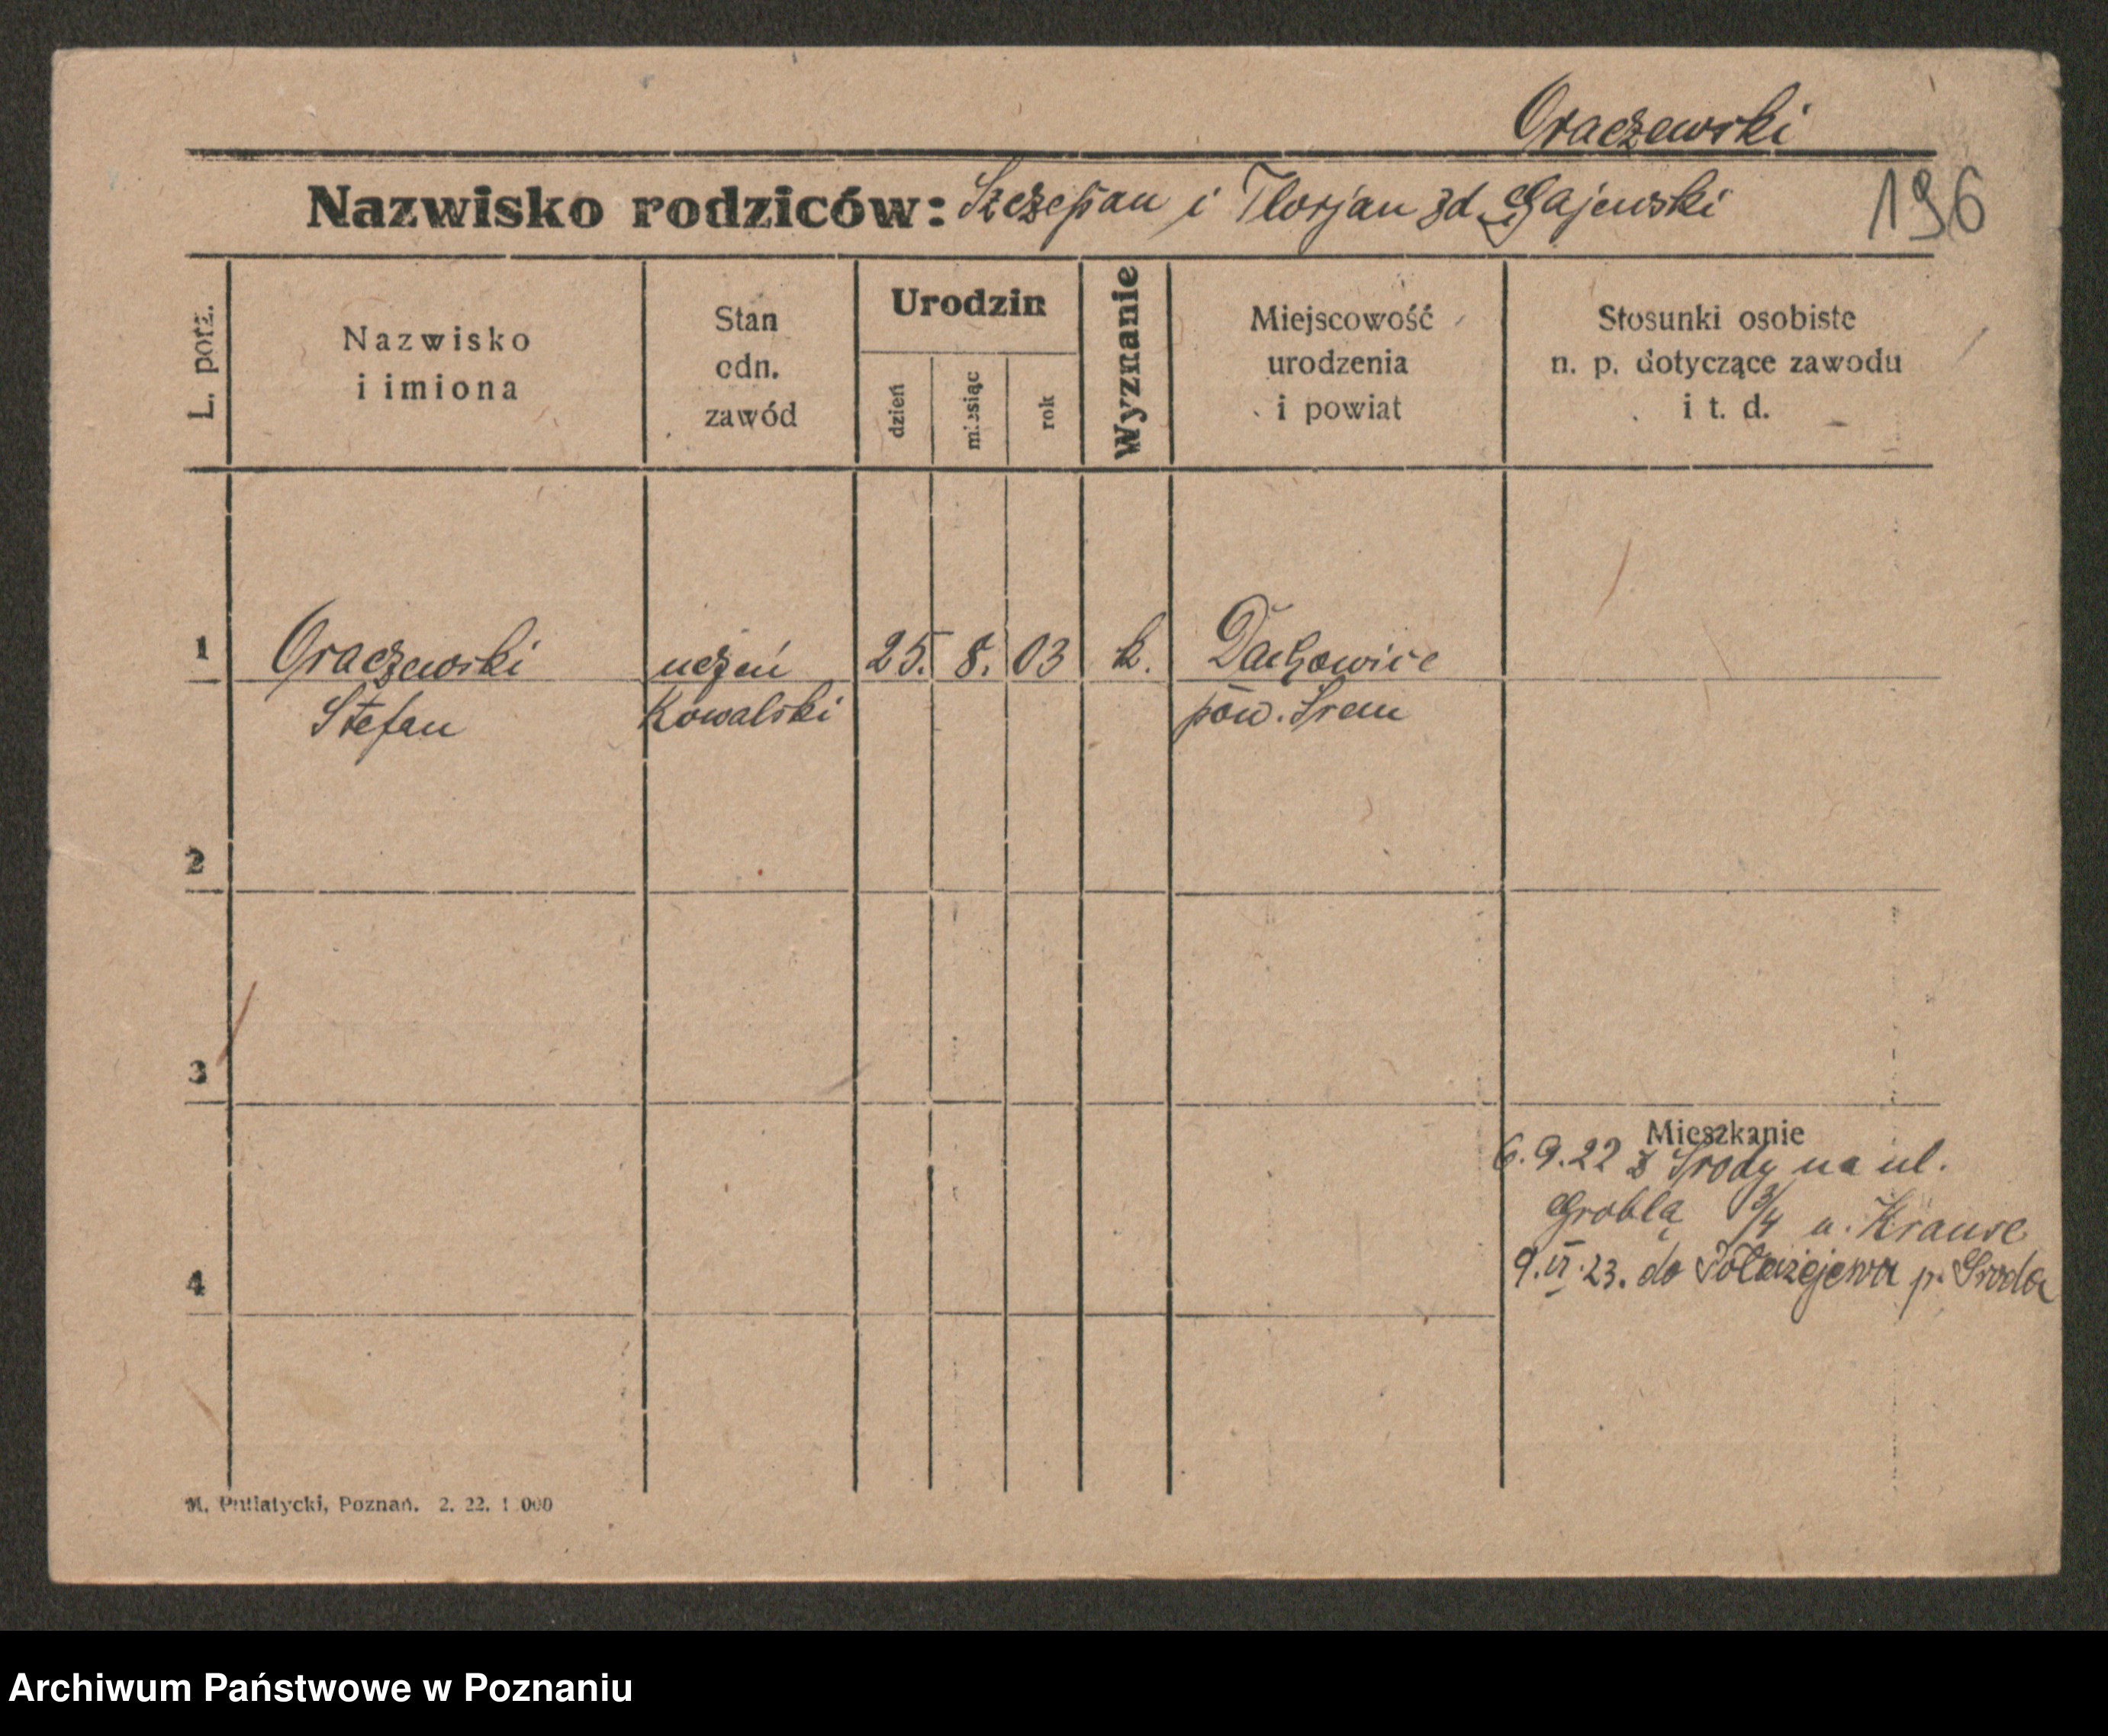 Oraczewski
Nazwisko rodziców: Szczepan i Florjan zd. Gajewski
196
L. porz.
Nazwisko
i imiona
Stan
odn.
zawód
Urodzin
dzień
miesiąc
rok
Wyznanie
Miejscowość
urodzenia
i powiat
Stosunki osobiste
n. p. dotyczące zawodu
i t. d.
1 Oraczewski uczeń 25. 8. 03 k. Dachowice
Stefan Kowalski pow. Srem
2
3
Mieszkanie
6.9.22 z Srody na ul.
Groblą 3/4 u. Krause
4
9.VI.23. do Połażejewa p. Sroda
M. Putiatycki, Poznań. 2. 22. 1 000
Archiwum Państwowe w Poznaniu